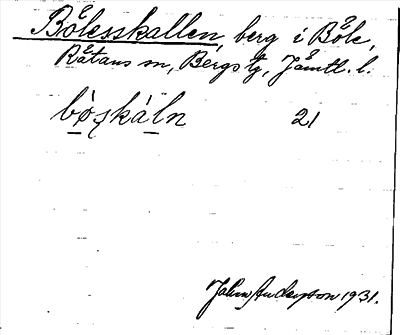 Bölesskallen, berg i Böle,
Råtans sn, Bergs tg, Jämtl. l.
bòskáln 21
John Anderson 1931.